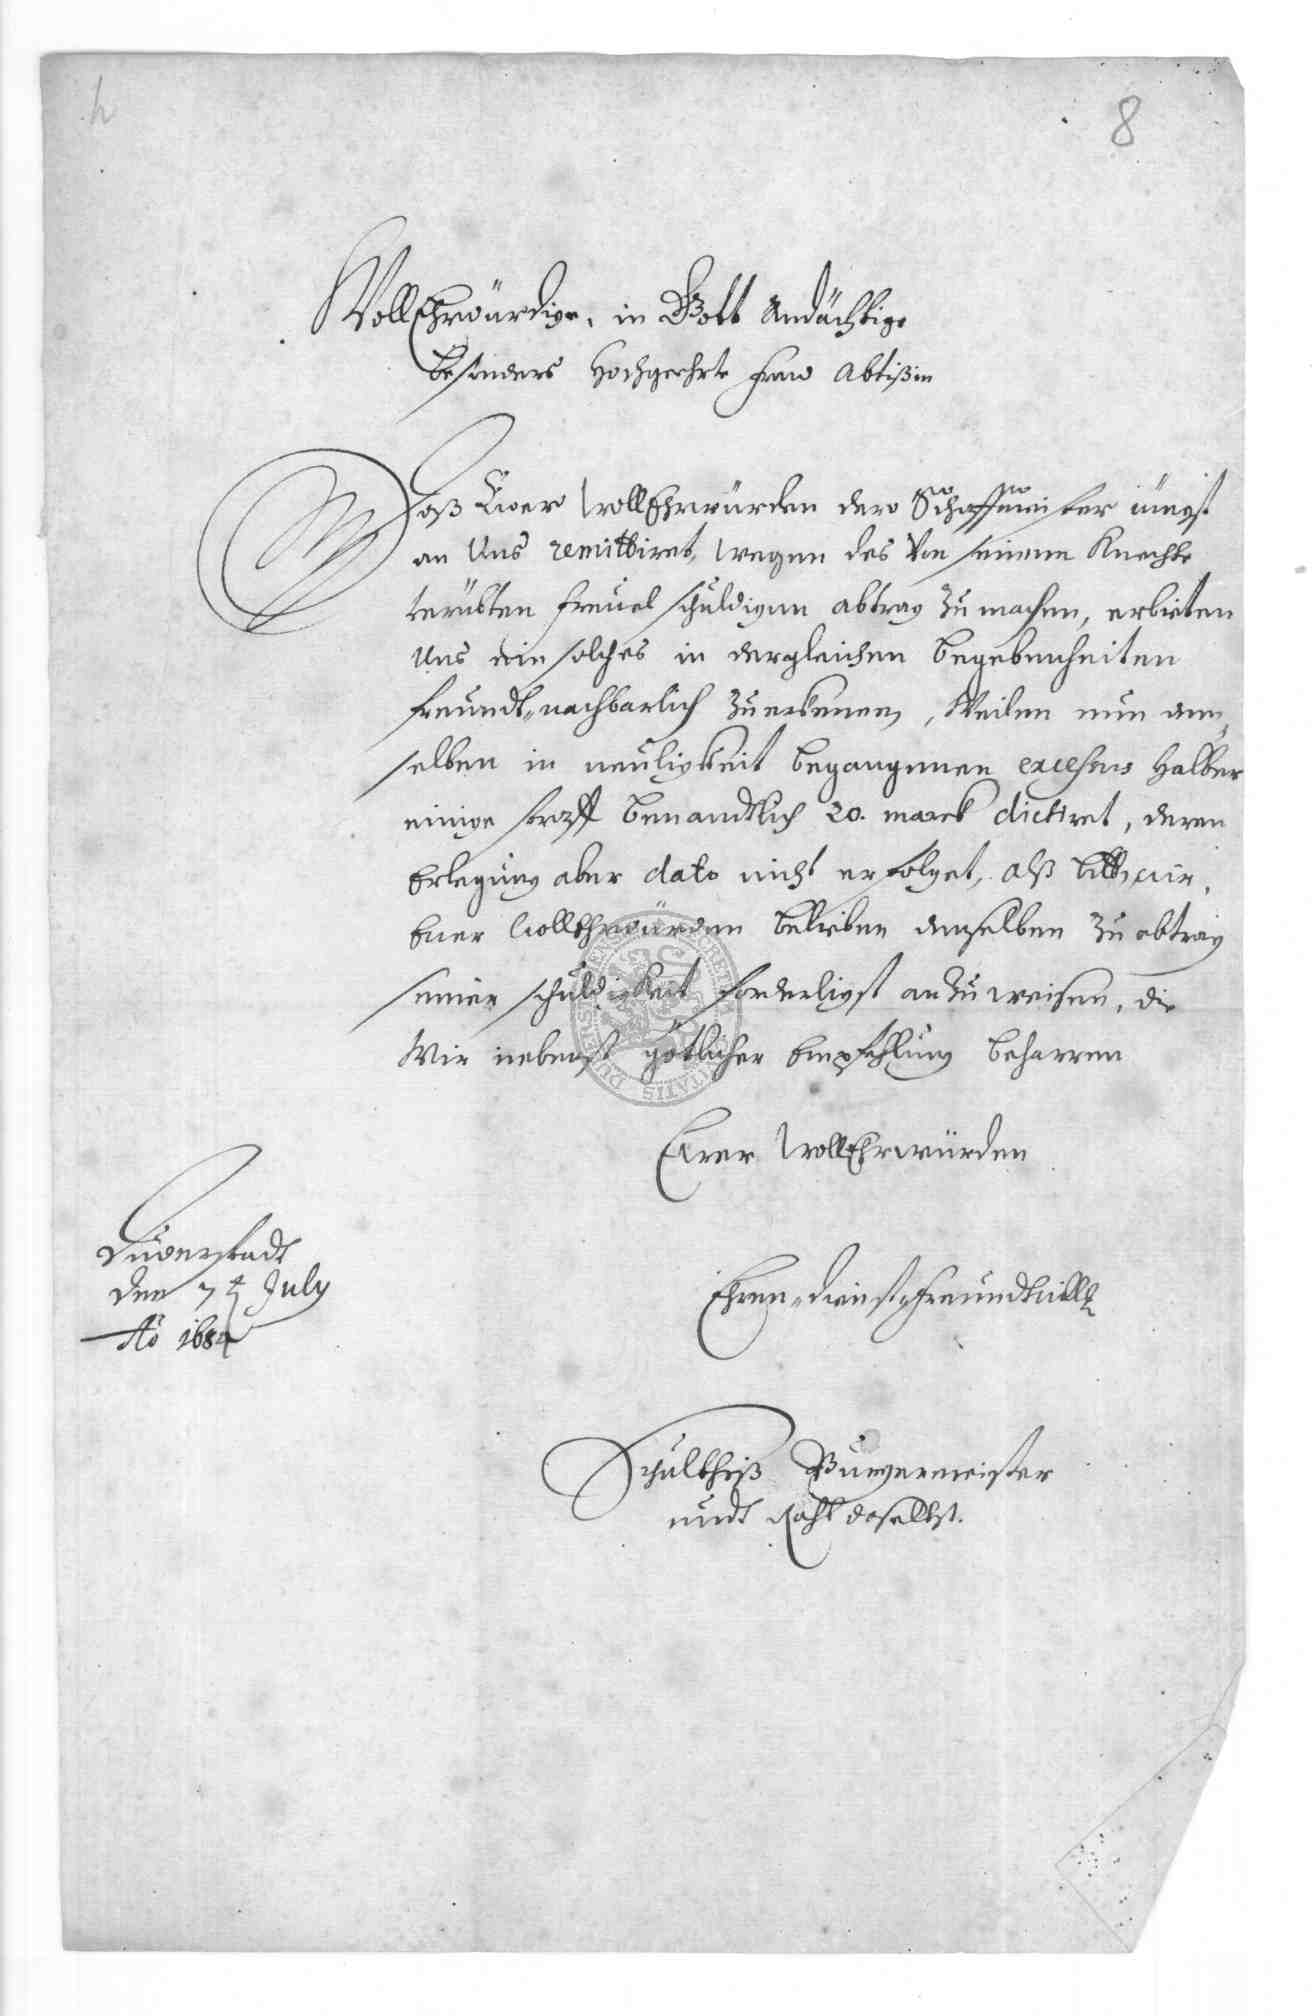 8
WollEhrwürdige, in Gott Andächtige
besonders Hochgeehrte Fraw Abtißin
Daß Ewer WollEhrwürden dero Schaffmeister jüngst
an Uns remittiret, wegen des von seinem Knechte
verübten Freuel schuldigen abtrag zu machen, erbieten
Uns ein solches in dergleichen begebenheiten
freundt-nachbarlich zuerkennen, Weilen nun dem-
selben in neuligkeit begangenen excessus halber
einige straff benandtlich 20. marck dictiret, deren
Erlegung aber dato nicht erfolget, alß bitten wir,
Euer WollEhrwürden belieben denselben zu abtrag
seiner schuldigkeit forderligst anzuweisen, die
Wir nebenst götlicher Empfehlung beharren
Ewer WollEhrwürden
Duderstadt
den 7 July
Ao 1684
Ehren-dienst-freundtwill
Schultheiß Burgermeister
undt Raht daselbst.